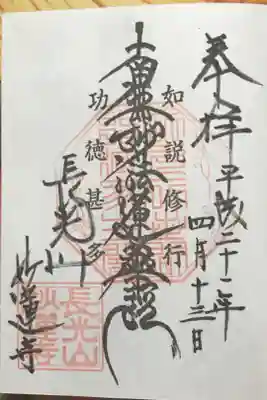 奉拝 平成二十二年
四月十三日
如説修行
南無妙法蓮華経
功徳甚多
長光山
妙蓮寺
長光山
妙蓮寺